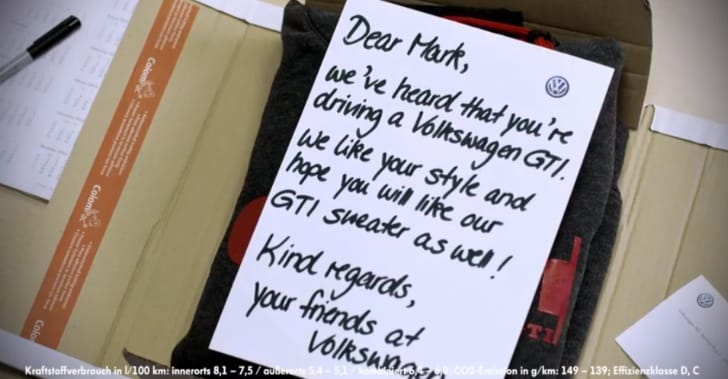 Dear Mark,
we've heard that you're
driving a Volkswagen GTI.
We like your style and
hope you will like our
GTI sweater as well!
Kind regards,
your friends at
Volkswagen
Colompac
Colompac
Kraftstoffverbrauch in l/100 km: innerorts 8,1 – 7,5 / außerorts 5,4 – 5,1 / kombiniert 6,4 – 6,0; CO2-Emission in g/km: 149 – 139; Effizienzklasse D, C